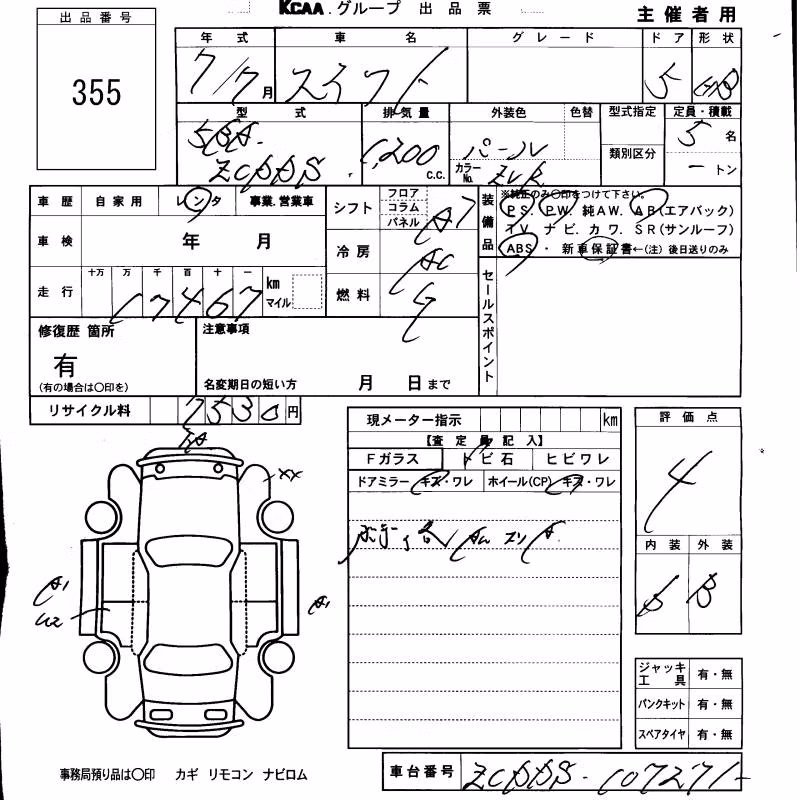 出品番号
355
KCAA.グループ 出品票
主催者用
年式 車名 グレード ドア 形状
7/7月 スイフト 5 HB
型式 排気量 外装色 色替 型式指定 定員・積載
5BA- 1,200 c.c. パール 5名
ZCDDS カラーNo. ZVR 類別区分 ートン
車歴 自家用 レンタ 事業.営業車
シフト フロア コラム パネル A7
装備品 ※純正のみ○印をつけて下さい。
PS. PW. 純AW. AB(エアバック)
TV. ナビ. カワ. SR(サンルーフ)
ABS ・ 新車保証書←(注) 後日送りのみ
車検 年 月
冷房 AC
走行 十万 万 千 百 十 一
17467 km マイル
燃料 G
セールスポイント
修復歴 箇所
有
(有の場合は○印を)
注意事項
名変期日の短い方 月 日まで
リサイクル料 7530円
現メーター指示 km
【査定員記入】
Fガラス トビ石 ヒビワレ
ドアミラー キズ・ワレ ホイール(CP) キズ・ワレ
評価点
4
内装 外装
B B
XX
A1
U2
A1
ジャッキ工具 有・無
パンクキット 有・無
スペアタイヤ 有・無
事務局預り品は○印 カギ リモコン ナビロム
車台番号 ZCDDS-107271-